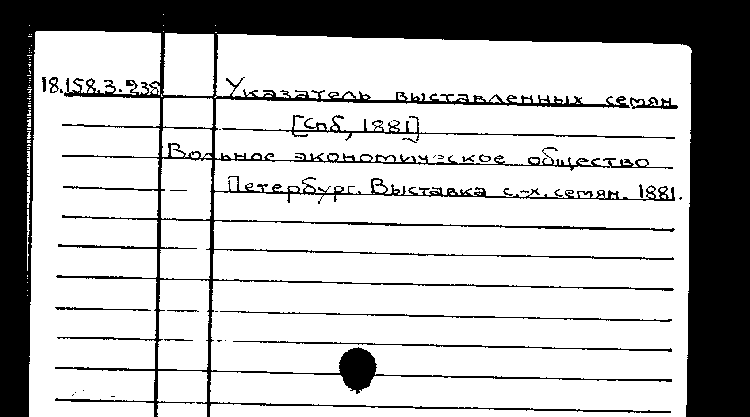 18.158.3.238 Указатель выставленных семян
[Спб, 1881]
Вольное экономическое общество
Петербург. Выставка с.-х. семян. 1881.